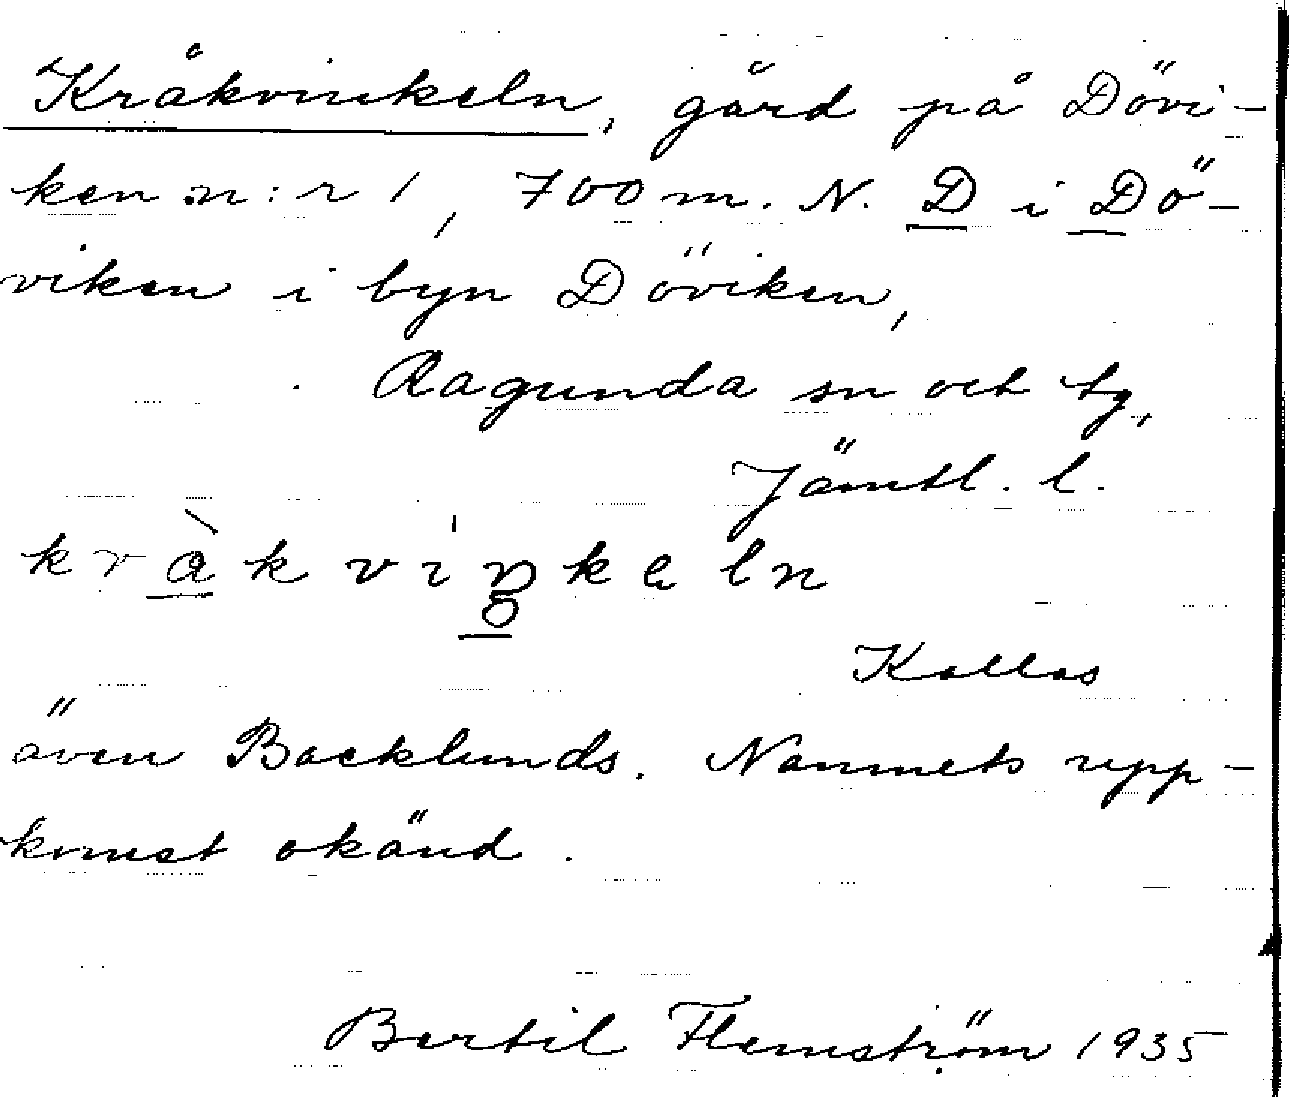 Kråkvinkeln, gård på Dövi-
ken n:r 1, 700 m. N. D i Dö-
viken i byn Döviken,
Ragunda sn och tg,
Jämtl. l.
kràkviŋkəln
Kallas
även Backlunds. Namnets upp-
komst okänd.
Bertil Flemström 1935